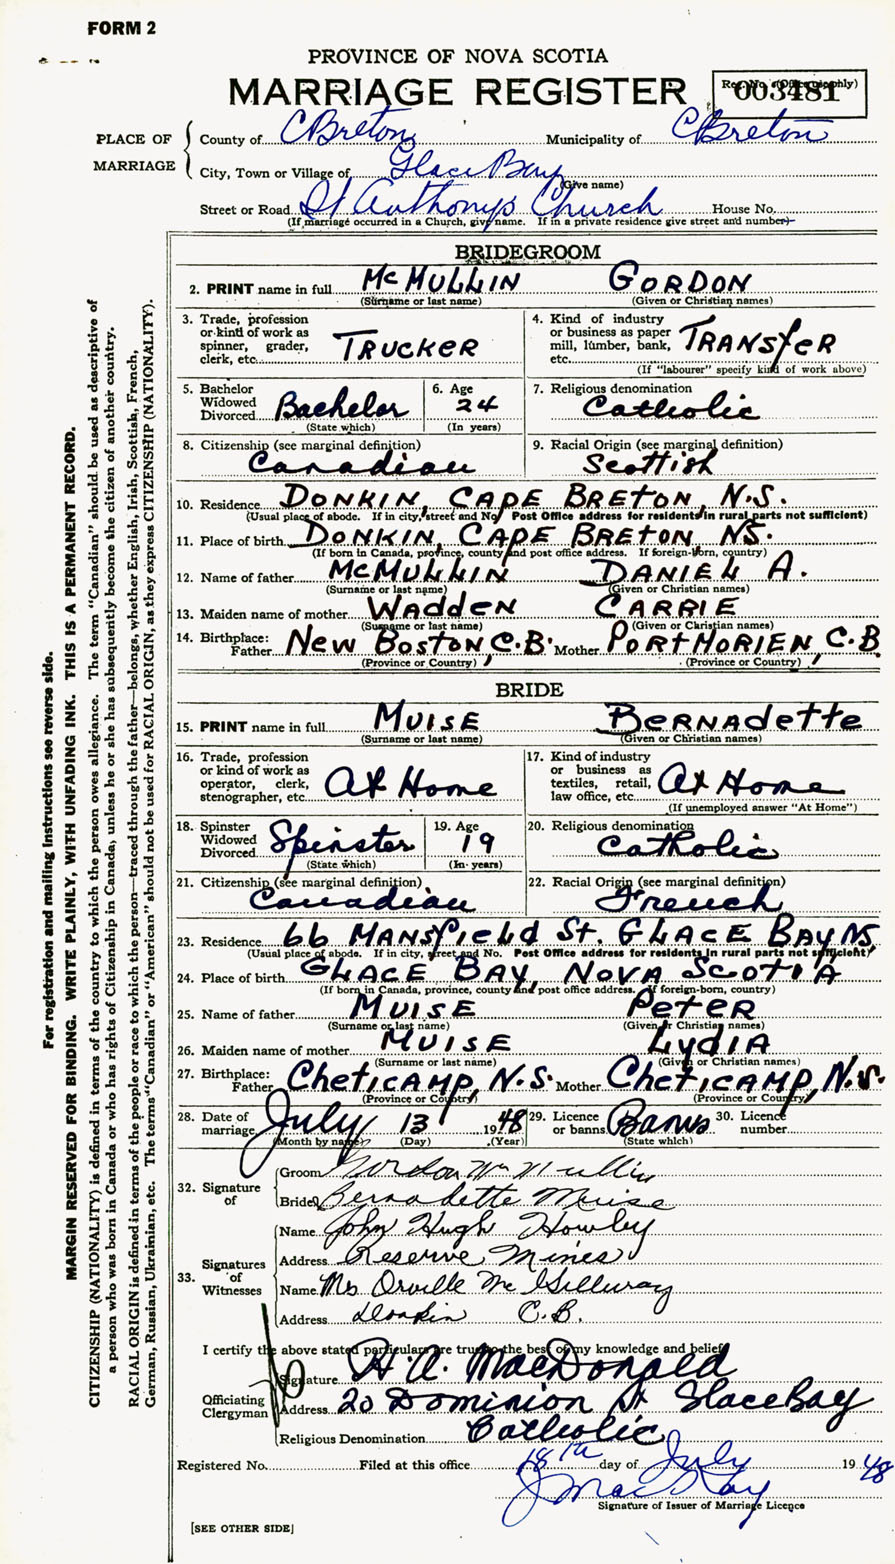 FORM 2
PROVINCE OF NOVA SCOTIA
MARRIAGE REGISTER
Reg. No. (Office use only)
003481
PLACE OF MARRIAGE
County of C Breton Municipality of C Breton
City, Town or Village of Glace Bay
(Give name)
Street or Road St Anthonys Church House No.
(If marriage occurred in a Church, give name. If in a private residence give street and number)
BRIDEGROOM
2. PRINT name in full McMULLIN GORDON
(Surname or last name) (Given or Christian names)
3. Trade, profession or kind of work as spinner, grader, clerk, etc. TRUCKER
4. Kind of industry or business as paper mill, lumber, bank, etc. TRANSFER
(If "labourer" specify kind of work above)
5. Bachelor Widowed Divorced Bachelor
(State which)
6. Age 24
(In years)
7. Religious denomination Catholic
8. Citizenship (see marginal definition) Canadian
9. Racial Origin (see marginal definition) Scottish
10. Residence DONKIN, CAPE BRETON, N.S.
(Usual place of abode. If in city, street and No. Post Office address for residents in rural parts not sufficient)
11. Place of birth DONKIN, CAPE BRETON NS.
(If born in Canada, province, county and post office address. If foreign-born, country)
12. Name of father McMULLIN DANIEL A.
(Surname or last name) (Given or Christian names)
13. Maiden name of mother WADDEN CARRIE
(Surname or last name) (Given or Christian names)
14. Birthplace: Father NEW BOSTON C.B. Mother PORT MORIEN, C.B
(Province or Country) (Province or Country)
BRIDE
15. PRINT name in full MUISE BERNADETTE
(Surname or last name) (Given or Christian names)
16. Trade, profession or kind of work as operator, clerk, stenographer, etc. At Home
17. Kind of industry or business as textiles, retail, law office, etc. At Home
(If unemployed answer "At Home")
18. Spinster Widowed Divorced Spinster
(State which)
19. Age 19
(In years)
20. Religious denomination Catholic
21. Citizenship (see marginal definition) Canadian
22. Racial Origin (see marginal definition) French
23. Residence 66 MANSFIELD St. GLACE BAY NS.
(Usual place of abode. If in city, street and No. Post Office address for residents in rural parts not sufficient)
24. Place of birth GLACE BAY, NOVA SCOTIA
(If born in Canada, province, county and post office address. If foreign-born, country)
25. Name of father MUISE PETER
(Surname or last name) (Given or Christian names)
26. Maiden name of mother MUISE LYDIA
(Surname or last name) (Given or Christian names)
27. Birthplace: Father CHETICAMP, N.S. Mother CHETICAMP, N.S.
(Province or Country) (Province or Country)
28. Date of marriage July 13 1948
(Month by name) (Day) (Year)
29. Licence or banns Banns
(State which)
30. Licence number
32. Signature of
Groom Gordon McMullin
Bride Bernadette Muise
33. Signatures of Witnesses
Name John Hugh Howley
Address Reserve Mines
Name Mrs Orville McGillivray
Address Donkin C.B.
I certify the above stated particulars are true to the best of my knowledge and belief
Officiating Clergyman
Signature H. A. MacDonald
Address 20 Dominion St Glace Bay
Religious Denomination Catholic
Registered No. Filed at this office 18th day of July 1948
J MacKay
Signature of Issuer of Marriage Licence
[SEE OTHER SIDE]
For registration and mailing instructions see reverse side.
MARGIN RESERVED FOR BINDING. WRITE PLAINLY, WITH UNFADING INK. THIS IS A PERMANENT RECORD.
CITIZENSHIP (NATIONALITY) is defined in terms of the country to which the person owes allegiance. The term "Canadian" should be used as descriptive of
a person who was born in Canada or who has rights of Citizenship in Canada, unless he or she has subsequently become the citizen of another country.
RACIAL ORIGIN is defined in terms of the people or race to which the person—traced through the father—belongs, whether English, Irish, Scottish, French,
German, Russian, Ukrainian, etc. The terms "Canadian" or "American" should not be used for RACIAL ORIGIN, as they express CITIZENSHIP (NATIONALITY).